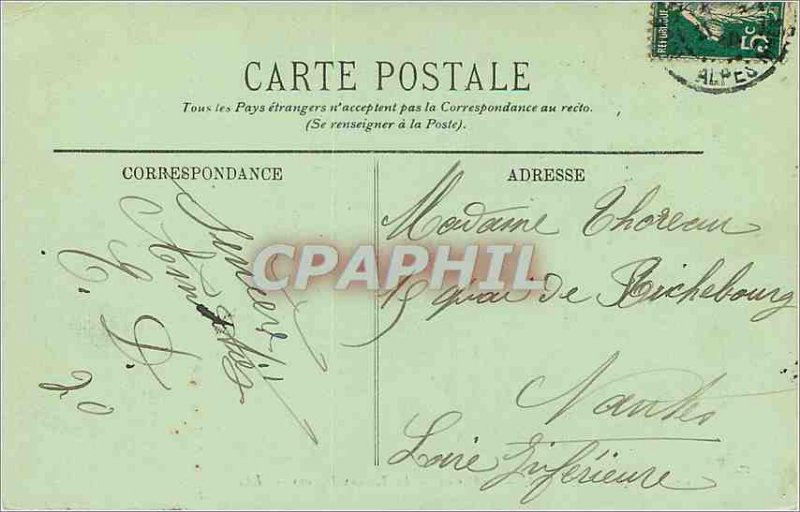 RÉPUBLIQUE
5c
ALPES
CARTE POSTALE
Tous les Pays étrangers n'acceptent pas la Correspondance au recto.
(Se renseigner à la Poste).
CORRESPONDANCE
ADRESSE
Sincères
Amitiés
Madame Thoreau
15 quai de Richebourg
Nantes
Loire Inférieure
CPAPHIL